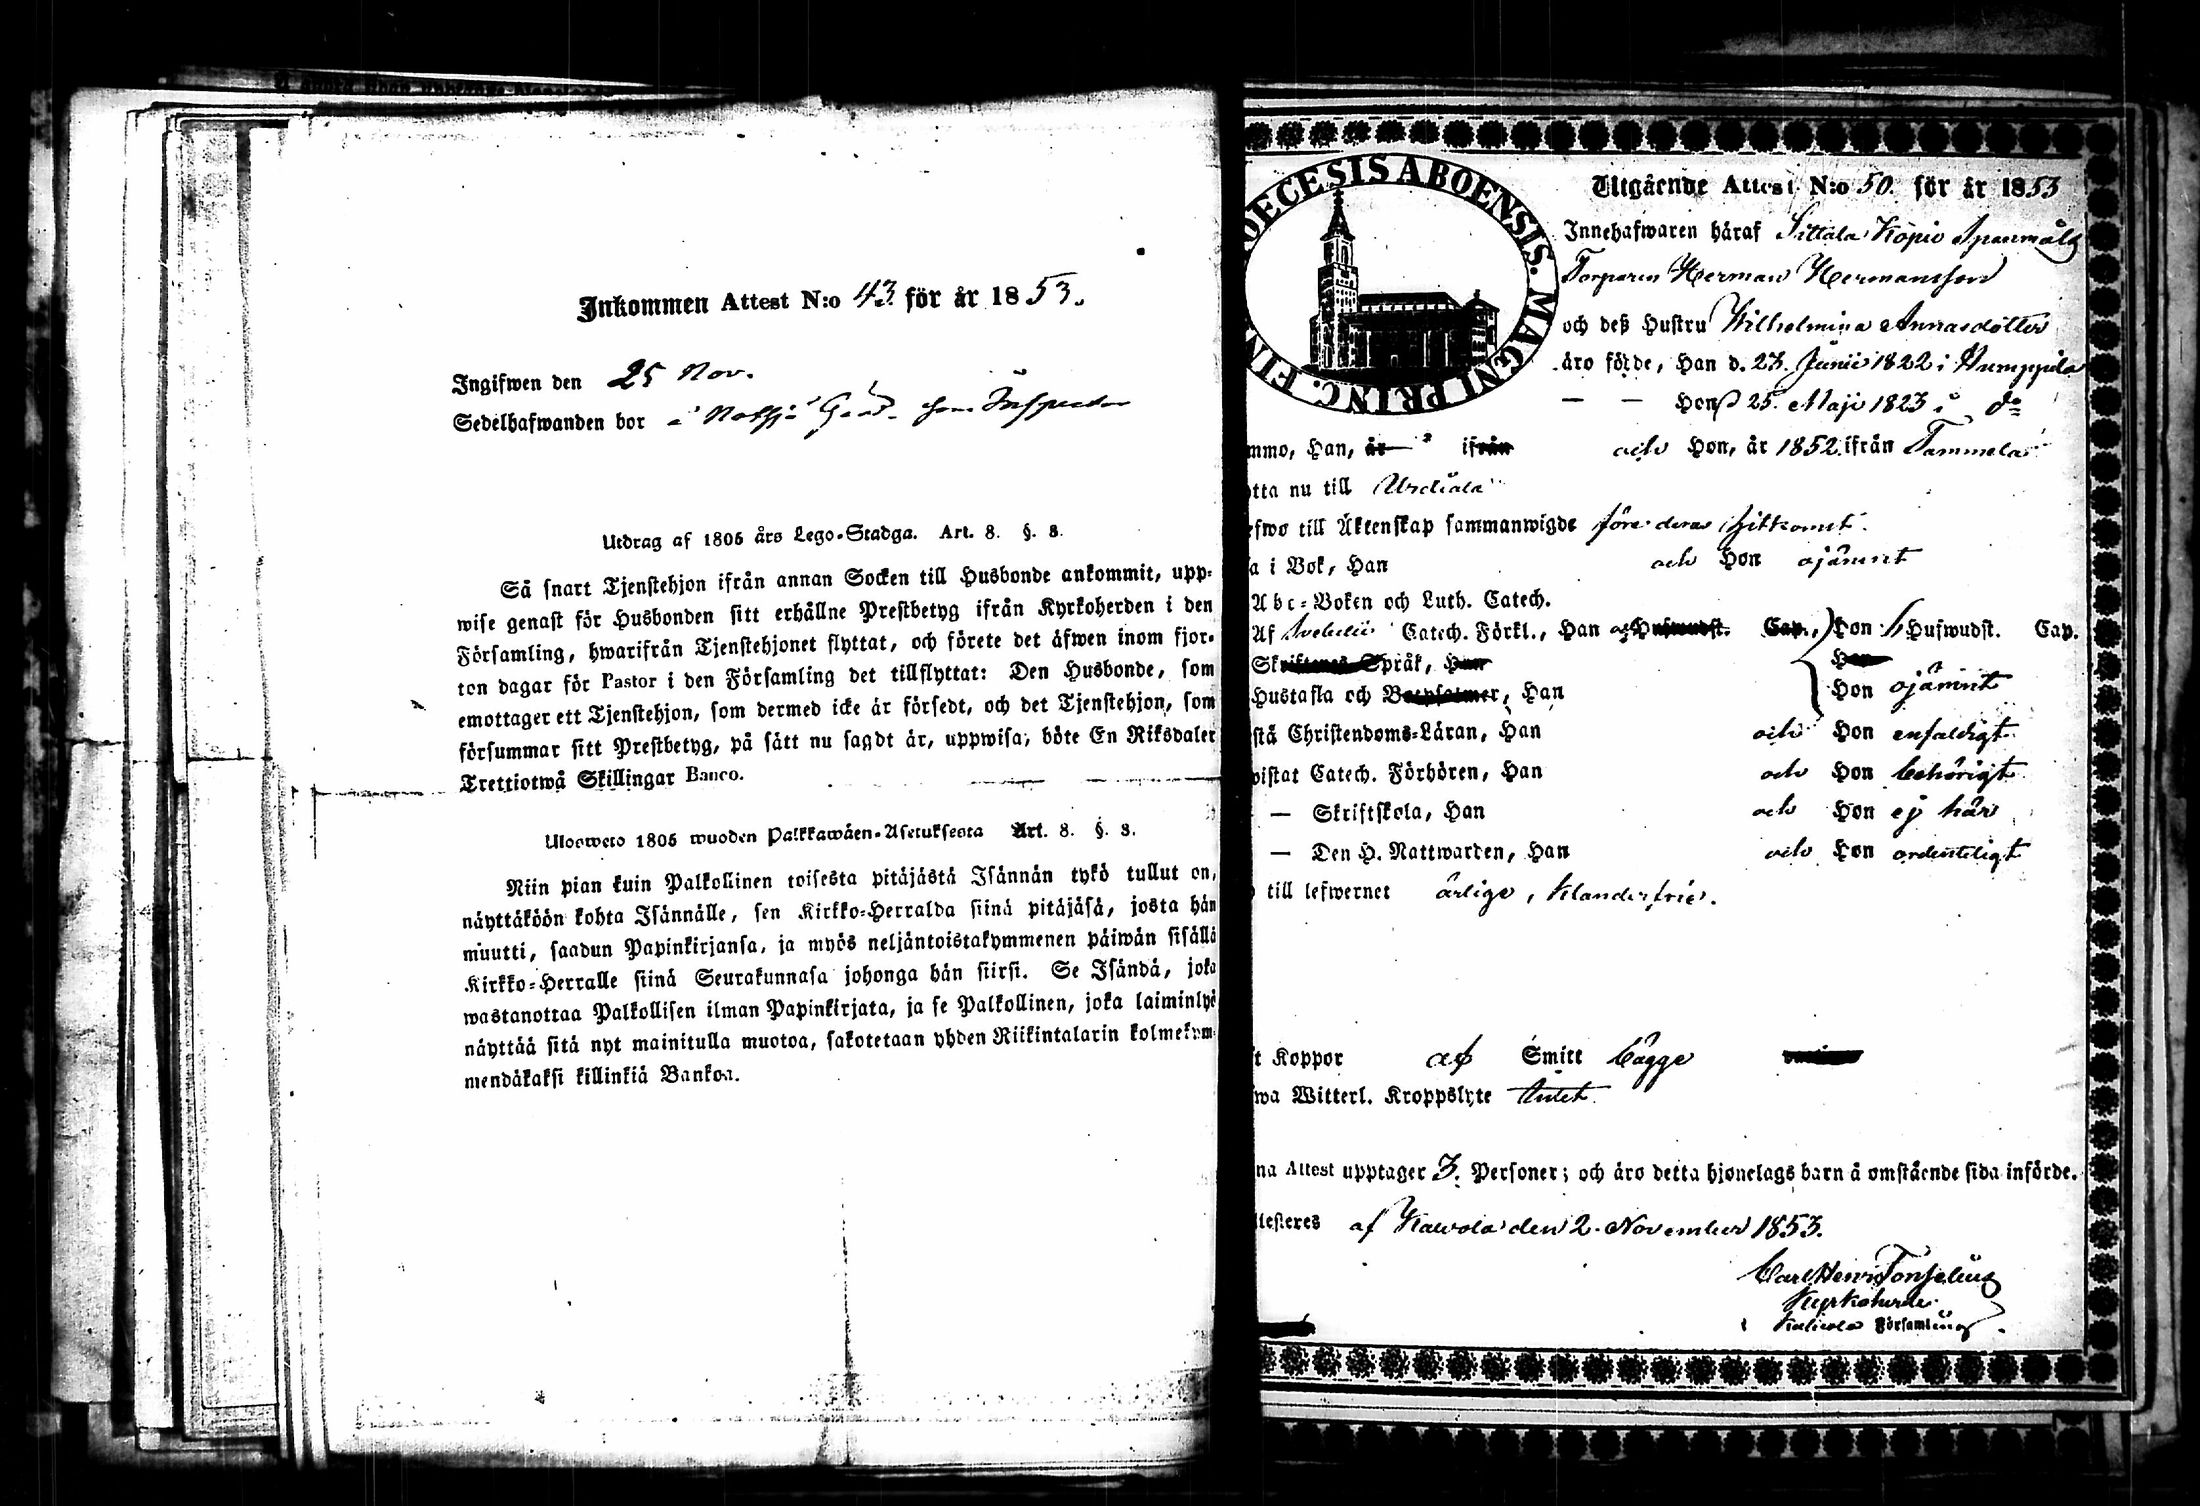 Inkommen Attest N:o 43 för år 1853.
Ingifwen den 25 Nov.
Sedelhafwanden bor å Gård som Inspector
Utdrag af 1805 års Lego-Stadga. Art. 8. §. 8.
Så snart Tjenstehjon ifrån annan Socken till Husbonde ankommit, upp-
wise genast för Husbonden sitt erhållne Prestbetyg ifrån Kyrkoherden i den
Församling, hwarifrån Tjenstehjonet flyttat, och förete det äfwen inom fjor-
ton dagar för Pastor i den Församling det tillflyttat: Den Husbonde, som
emottager ett Tjenstehjon, som dermed icke är försedt, och det Tjenstehjon, som
försummar sitt Prestbetyg, på sätt nu sagdt är, uppwisa, böte En Riksdaler
Trettiotwå Skillingar Banco.
Ulosweto 1805 wuoden Palkkawäen-Asetuksesta Art. 8. §. 8.
Niin pian kuin Palkollinen toisesta pitäjästä Isännän tykö tullut on,
näyttäköön kohta Isännälle, sen Kirkko-Herralda siinä pitäjäsä, josta hän
muutti, saadun Papinkirjansa, ja myös neljäntoistakymmenen päiwän sisällä
Kirkko-Herralle siinä Seurakunnasa johonga hän siirsi. Se Isändä, joka
wastanottaa Palkollisen ilman Papinkirjata, ja se Palkollinen, joka laiminlyö
näyttää sitä nyt mainitulla muotoa, sakotetaan yhden Riikintalarin kolmekym-
mendäkaksi killinkiä Bankoa.
DECESIS ABOENSIS. MAGNI PRINC. FIN
Utgående Attest N:o 50. för år 1853
Innehafwaren häraf Sittala Köpio Spanmåls
Torparen Herman Hermansson
och deß Hustru Wilhelmina Annasdotter
äro födde, Han d. 23. Junii 1822 i Humppila
— — Hon d 25. Maji 1823 i do
mmo, Han, år ifrån och Hon, år 1852 ifrån Tammela
tta nu till Urdiala
efwo till Äktenskap sammanwigde före deras hitkomst.
a i Bok, Han och Hon ojämnt
Abc-Boken och Luth. Catech.
Af Svebelii Catech. Förkl., Han och Hufwudst. Cap., Hon 6 Hufwudst. Cap.
Skriftenes Språk, Han Hon
Hustafla och Botpsalmer, Han Hon ojämnt
stå Christendoms-Läran, Han och Hon enfaldigt
wistat Catech. Förhören, Han och Hon behörigt
— Skriftskola, Han och Hon ej här
— Den H. Nattwarden, Han och Hon ordentligt
till lefwernet ärlige, klanderfrie.
t Koppor af Smitt bägge
wa Witterl. Kroppslyte Intet
na Attest upptager 3. Personer; och äro detta hjonelags barn å omstående sida införde.
ttesteres af Kalvola den 2. November 1853.
Carl Henr Tonselius
Kyrkoherde
i Kalvola Församling.